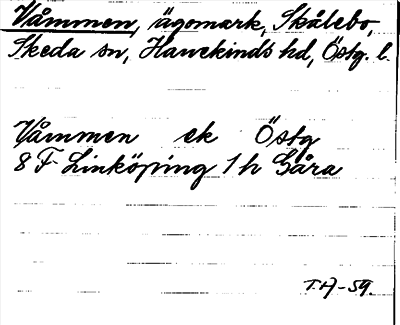 Våmmen, ägomark, Skålebo,
Skeda sn, Hanekinds hd, Östg. l.
Våmmen ek Östg
8 F Linköping 1 h Gåra
T.H-59.